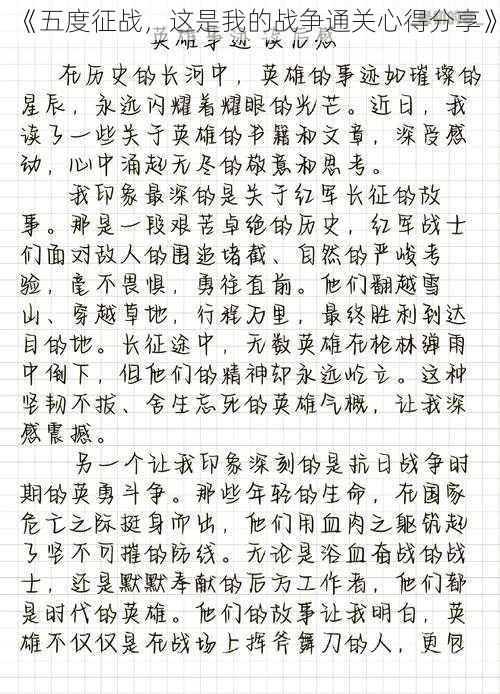 《五度征战，这是我的战争通关心得分享》
英雄事迹读后感
在历史的长河中，英雄的事迹如璀璨的
星辰，永远闪耀着耀眼的光芒。近日，我
读了一些关于英雄的书籍和文章，深受感
动，心中涌起无尽的敬意和思考。
我印象最深的是关于红军长征的故
事。那是一段艰苦卓绝的历史，红军战士
们面对敌人的围追堵截、自然的严峻考
验，毫不畏惧，勇往直前。他们翻越雪
山、穿越草地，行程万里，最终胜利到达
目的地。长征途中，无数英雄在枪林弹雨
中倒下，但他们的精神却永远屹立。这种
坚韧不拔、舍生忘死的英雄气概，让我深
感震撼。
另一个让我印象深刻的是抗日战争时
期的英勇斗争。那些年轻的生命，在国家
危亡之际挺身而出，他们用血肉之躯筑起
了坚不可摧的防线。无论是浴血奋战的战
士，还是默默奉献的后方工作者，他们都
是时代的英雄。他们的故事让我明白，英
雄不仅仅是在战场上挥斧舞刀的人，更包